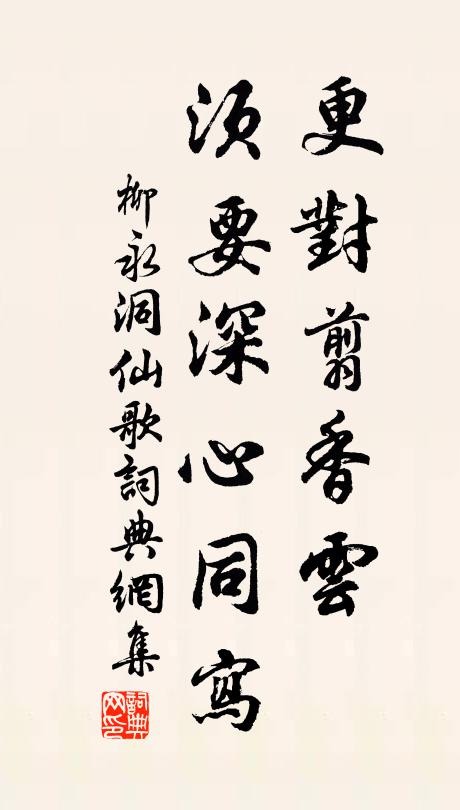 更對翦香雲
須要深心同寫
柳永洞仙歌詞典網集
詞典网印